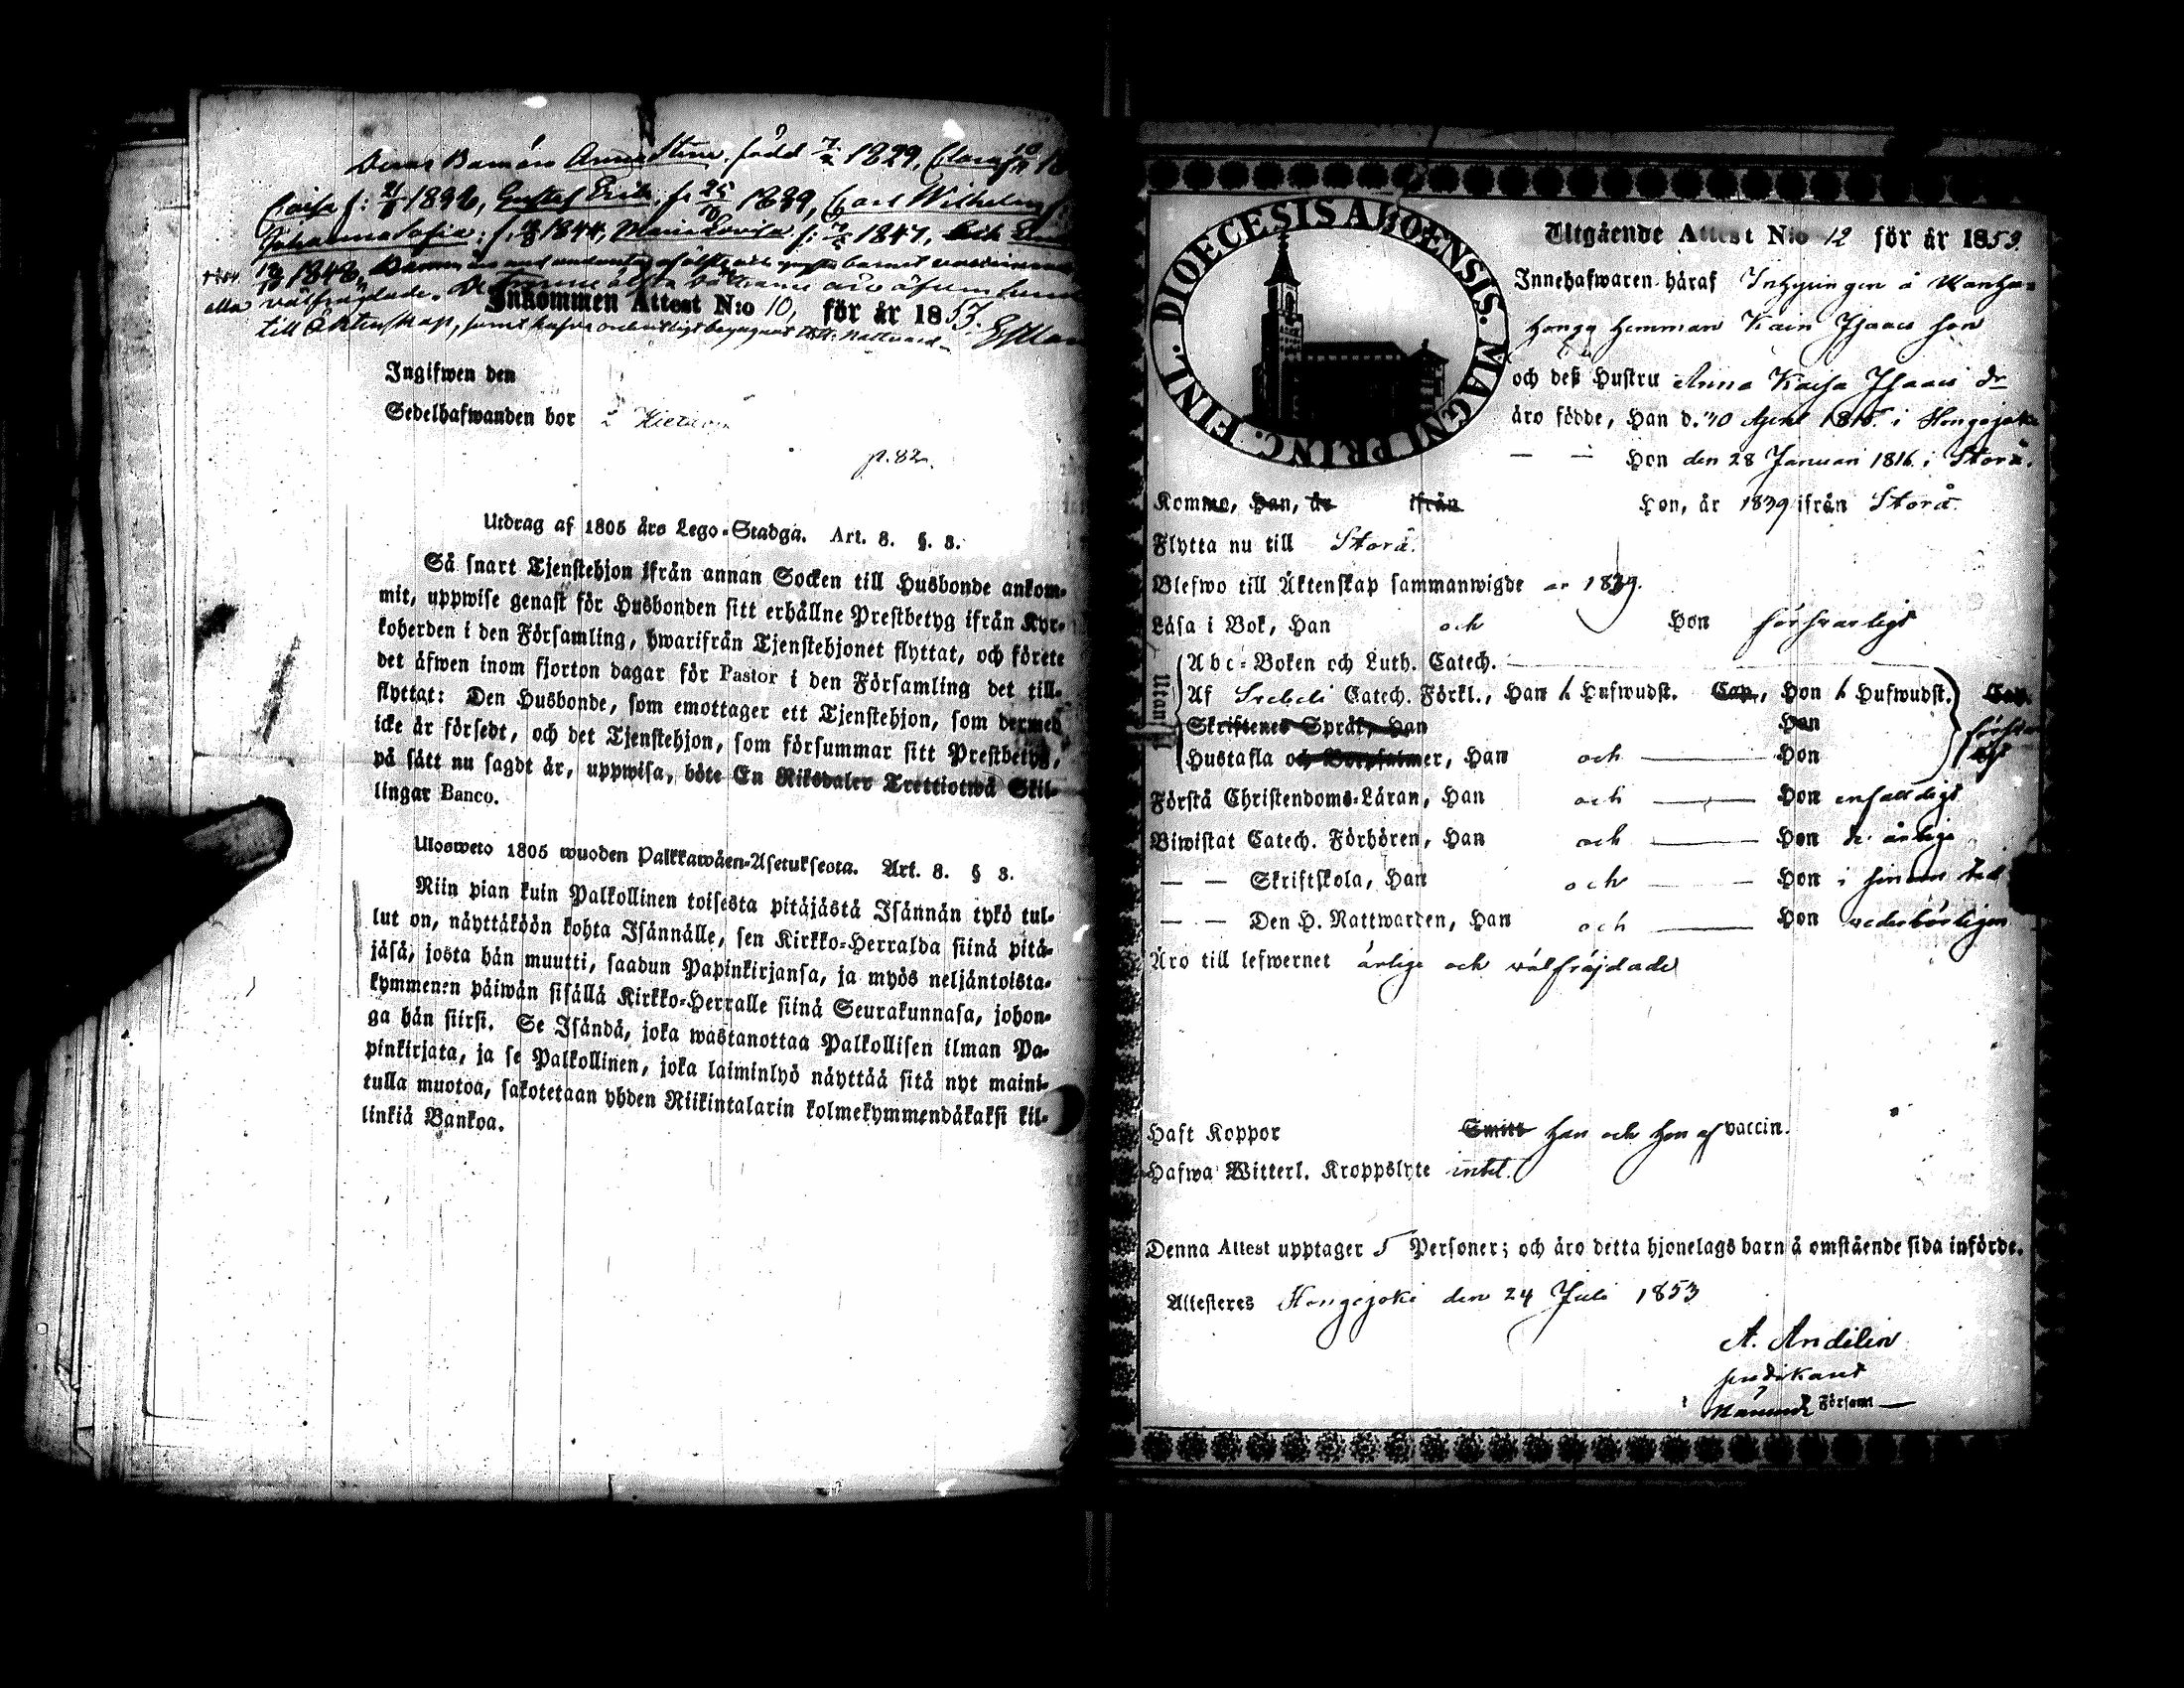 Deras Barn äro Anna Stina född 7/2 1829, Clara
Caisa f: 21/8 Gustaf Erik, f. 25/10 1839, Carl Wilhelm
Johanna Sofia: f. 1844, Maria Lovisa f: 1847,
1848,
alla välfräjdade. De
till Äktenskap, samt hafva ordentligt begagnat Nattvard
Inkommen Attest N:o 10, för år 1853.
Ingifwen den
Sedelhafwanden bor i
p. 82.
Utdrag af 1805 års Lego-Stadga. Art. 8. §. 3.
Så snart Tjenstehjon ifrån annan Socken till Husbonde ankom-
mit, uppwise genast för Husbonden sitt erhållne Prestbetyg ifrån Kyr-
koherden i den Församling, hwarifrån Tjenstehjonet flyttat, och förete
det äfwen inom fjorton dagar för Pastor i den Församling det till-
flyttat: Den Husbonde, som emottager ett Tjenstehjon, som dermed
icke är försedt, och det Tjenstehjon, som försummar sitt Prestbetyg,
på sätt nu sagdt är, uppwisa, böte En Riksdaler Trettiotwå Skil-
lingar Banco.
Ulosweto 1805 wuoden Palkkawäen-Asetuksesta. Art. 8. § 3.
Niin pian kuin Palkollinen toisesta pitäjästä Isännän tykö tul-
lut on, näyttäköön kohta Isännälle, sen Kirkko-Herralda siinä pitä-
jäsä, josta hän muutti, saadun Papinkirjansa, ja myös neljäntoista-
kymmenen päiwän sisällä Kirkko-Herralle siinä Seurakunnasa, johon-
ga hän siirsi. Se Isändä, joka wastanottaa Palkollisen ilman Pa-
pinkirjata, ja se Palkollinen, joka laiminlyö näyttää sitä nyt maini-
tulla muotoa, sakotetaan yhden Riikintalarin kolmekymmendäkaksi kil-
linkiä Bankoa.
DIOECESIS ABOENSIS. MAGNI PRINC. FINL.
Utgående Attest N:o 12 för år 1853.
Innehafwaren häraf Inhysingen å
hemman Isaacs son
och deß Hustru Anna Kaisa Isaacs dr
äro födde, Han d. 10 April 1815 i Hongojoki
— — Hon den 28 Januari 1816 i Storå.
Kommo, Han, år ifrån Hon, år 1839 ifrån Storå
Flytta nu till Storå.
Blefwo till Äktenskap sammanwigde år 1839.
Läsa i Bok, Han och Hon försvarligt
Utan
Abc-Boken och Luth. Catech.
Af Svebeli Catech. Förkl., Han 6 Hufwudst. Cap., Hon 6 Hufwudst. Cap.
Skriftenes Språk, Han Hon
Hustafla och Botpsalmer, Han och Hon
Förstå Christendoms-Läran, Han och Hon enfaldigt
Biwistat Catech. Förhören, Han och Hon de årlige
— — Skriftskola, Han och Hon i sinom tid
— — Den H. Nattwarden, Han och Hon vederbörligen
Äro till lefwernet ärlige och wälfräjdade
Haft Koppor Smitt han och hon af vaccin.
Hafwa Witterl. Kroppslyte intet.
Denna Attest upptager 5 Personer; och äro detta hjonelags barn å omstående sida införde.
Attesteres Hongojoki den 24 Juli 1853
A. Andelin
predikant
i Församl